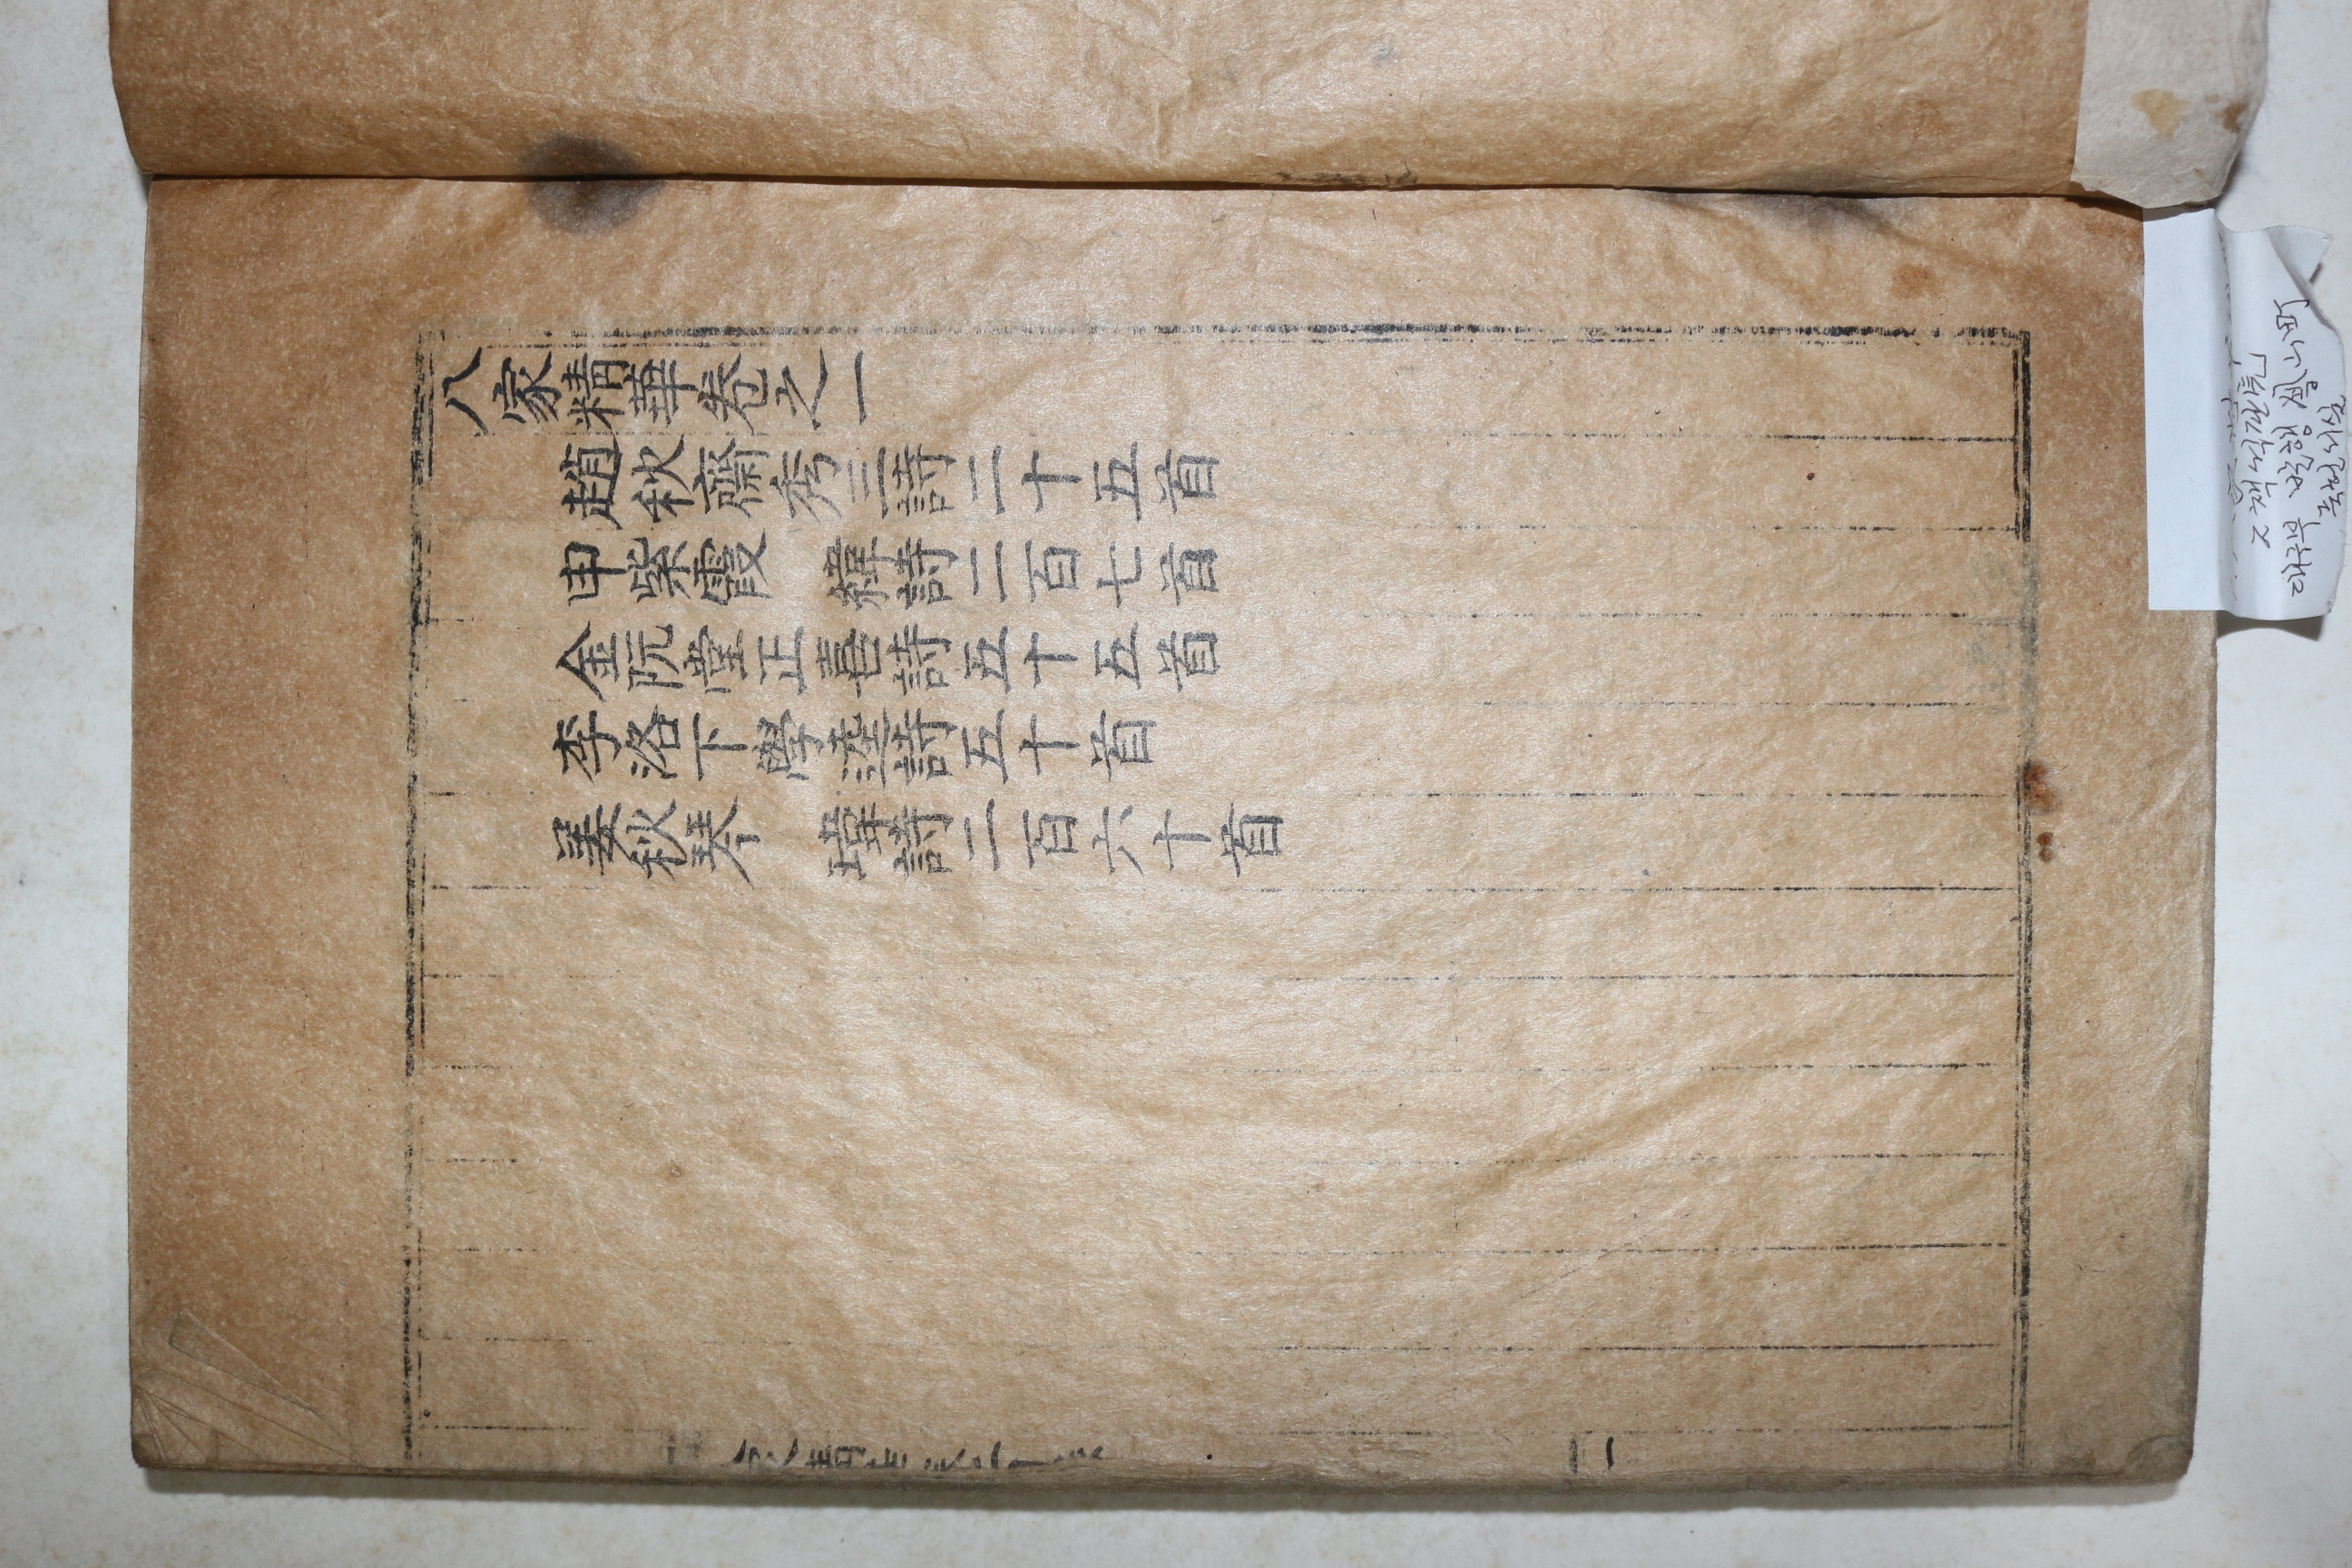 八家精華卷之一
趙秋齋秀三詩二十五首
申紫霞 緯詩二百七首
金阮堂正喜詩五十五首
李洛下學逵詩五十首
姜秋琴 瑋詩二百六十首
대구부 발행 鳳山町